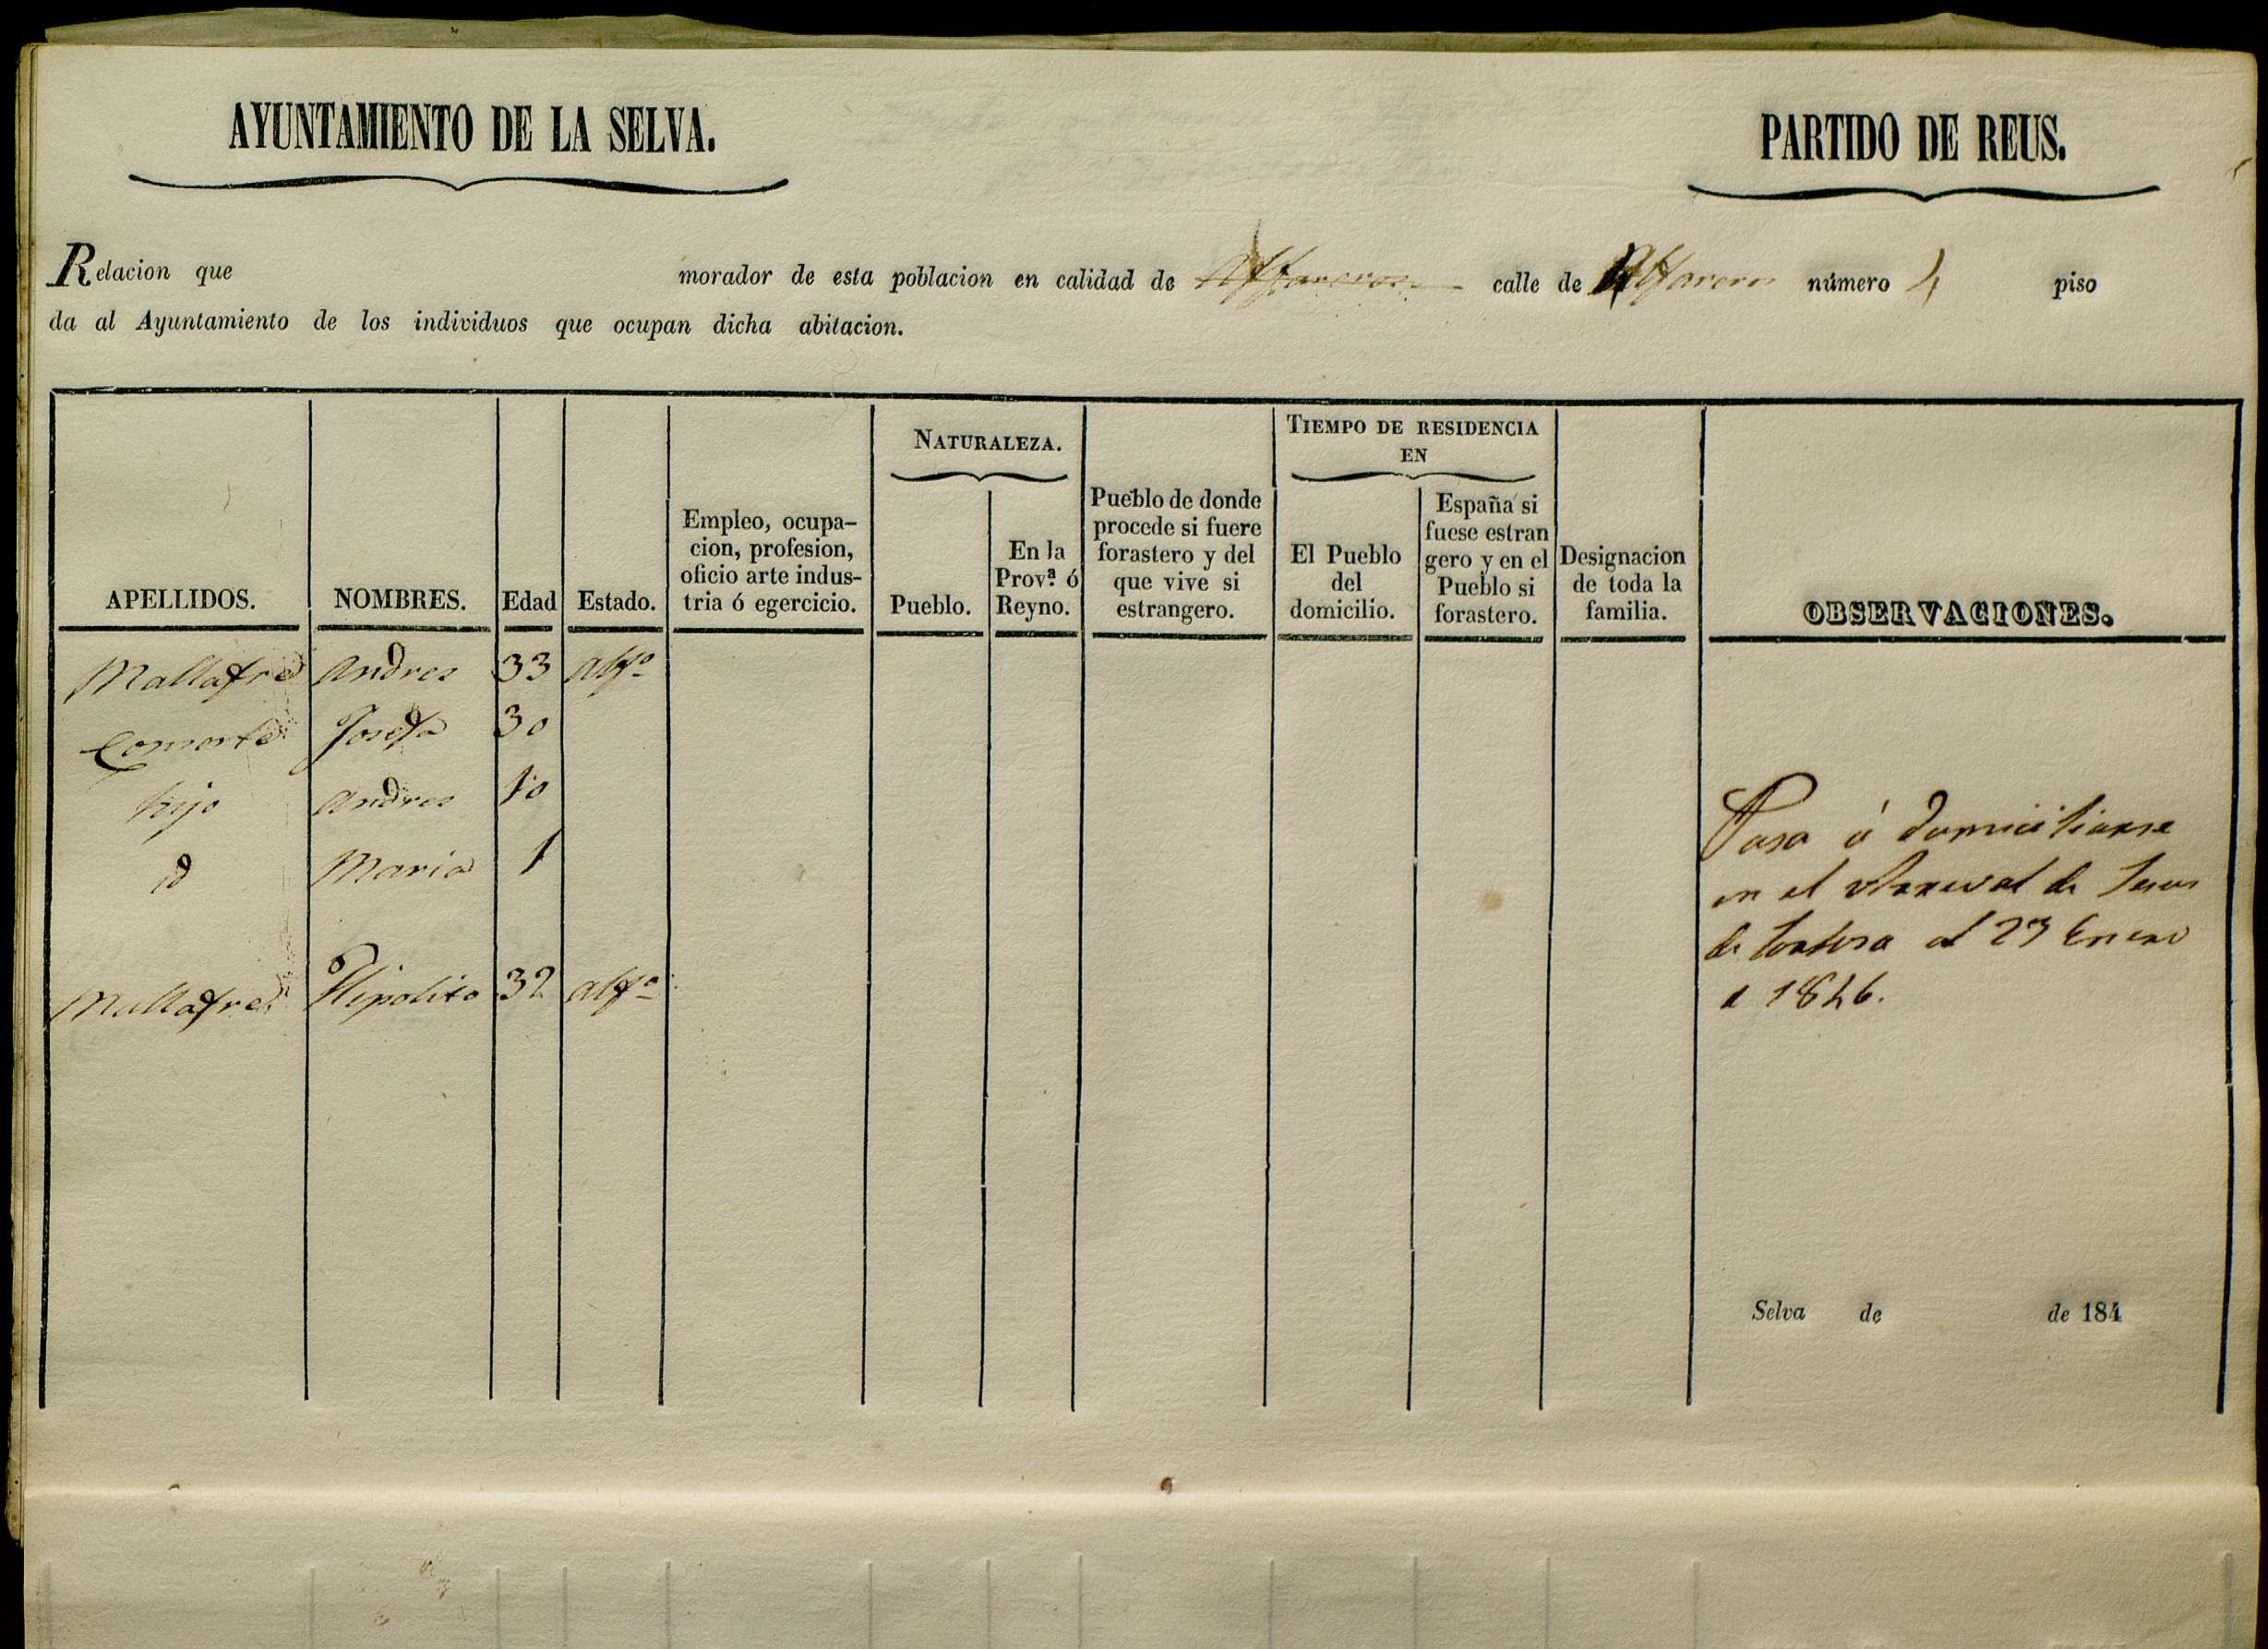 AYUNTAMIENTO DE LA SELVA.
PARTIDO DE REUS.
Relacion que morador de esta poblacion en calidad de Alfareros calle de Alfareros número 4 piso
da al Ayuntamiento de los individuos que ocupan dicha abitacion.
APELLIDOS.
NOMBRES.
Edad
Estado.
Empleo, ocupa-
cion, profesion,
oficio arte indus-
tria ó egercicio.
NATURALEZA.
Pueblo.
En la
Prov.ª ó
Reyno.
Pueblo de donde
procede si fuere
forastero y del
que vive si
estrangero.
TIEMPO DE RESIDENCIA
EN
El Pueblo
del
domicilio.
España si
fuese estran
gero y en el
Pueblo si
forastero.
Designacion
de toda la
familia.
OBSERVACIONES.
Mallafré Andres 33 alfº
Consorte Josefa 30
hijo Andres 10
id Maria 1
Mallafré Hipolito 32 alfº
Pasa á domiciliarse
en el Arraval de Jesus
de Tortosa al 23 Enero
d 1846.
Selva de de 184